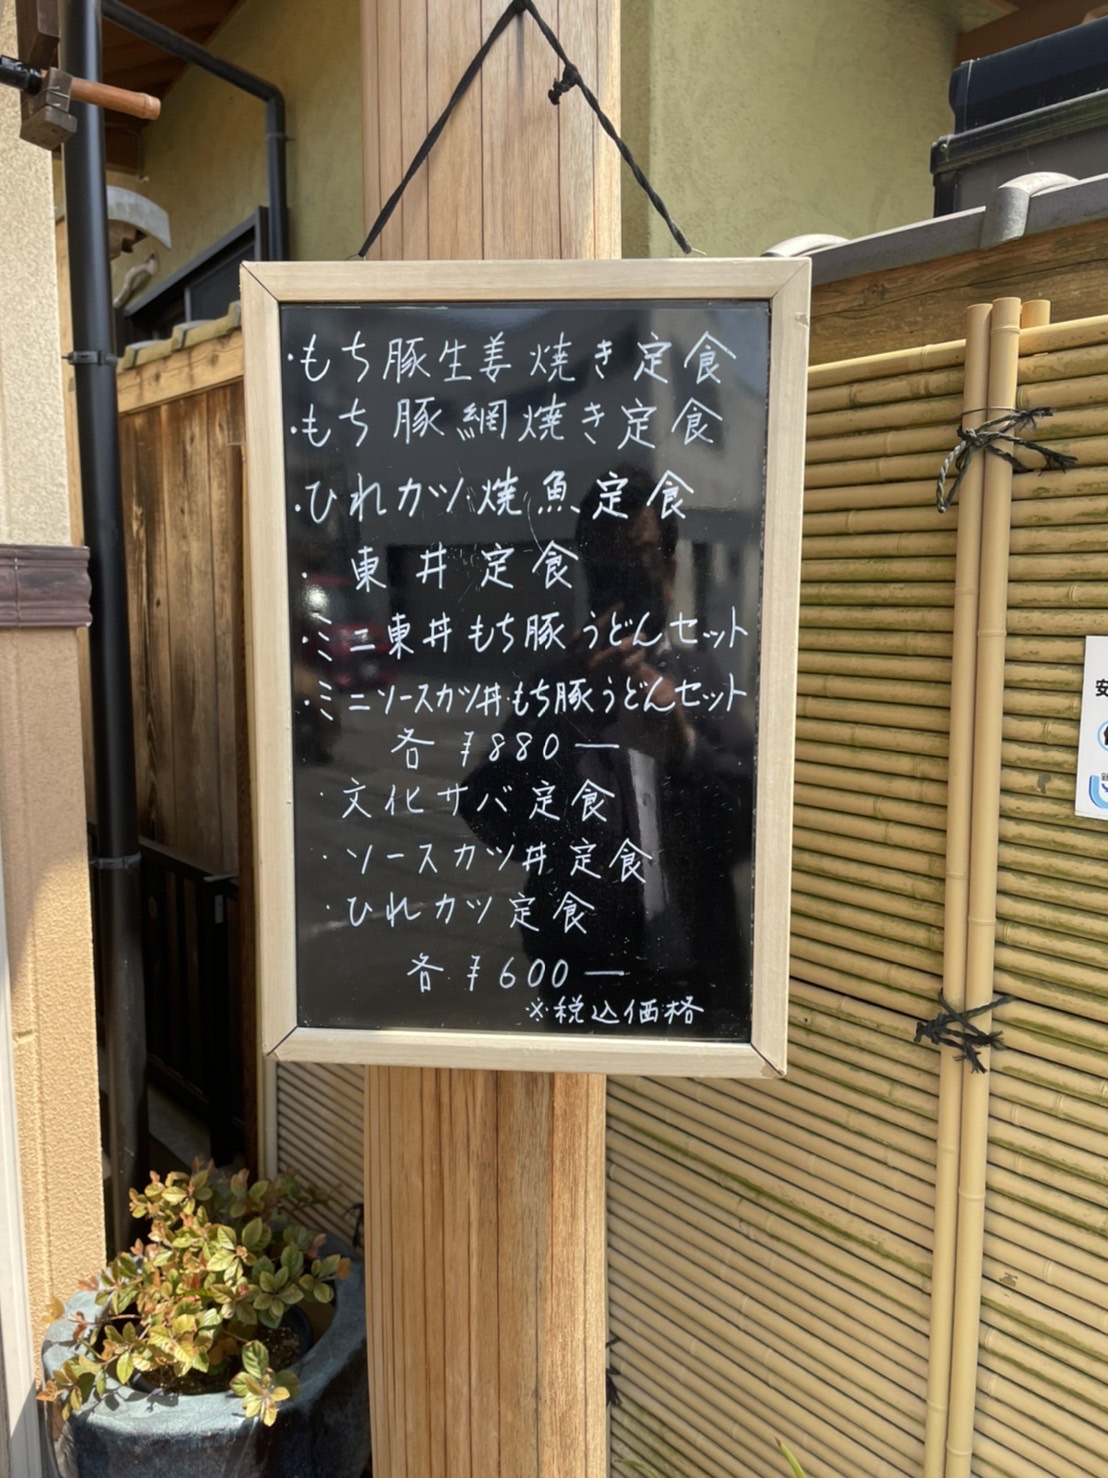 ・もち豚生姜焼き定食
・もち豚網焼き定食
・ひれカツ焼魚定食
・東丼定食
・ミニ東丼もち豚うどんセット
・ミニソースカツ丼もち豚うどんセット
各¥880ー
・文化サバ定食
・ソースカツ丼定食
・ひれカツ定食
各¥600ー
※税込価格
安